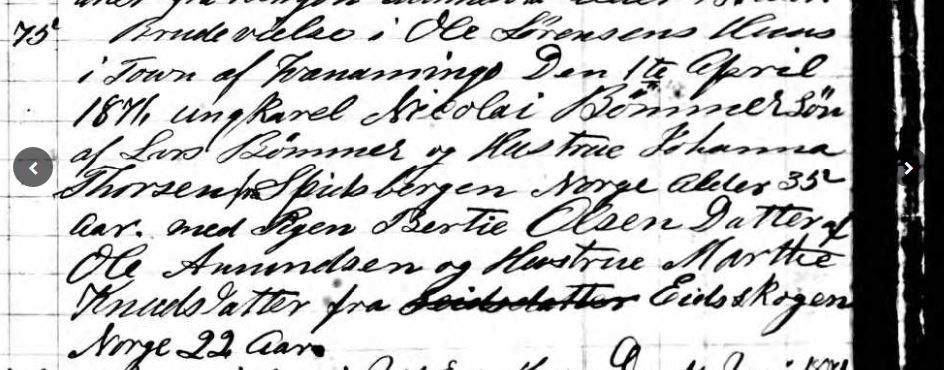 75 Brudevielse i Ole Sørensens Huus
i Town af Wanamingo Den 1te April
1871, ungkarel Nicolai Bömmer Søn
af Lars Bömmer og Hustrue Johanna
Thorsen fra Spidsbergen Norge Alder 35
Aar. med Pigen Bertie Olsen Datter af
Ole Amundsen og Hustrue Marthe
Knudsdatter fra Eidsskogen
Norge 22 Aar.